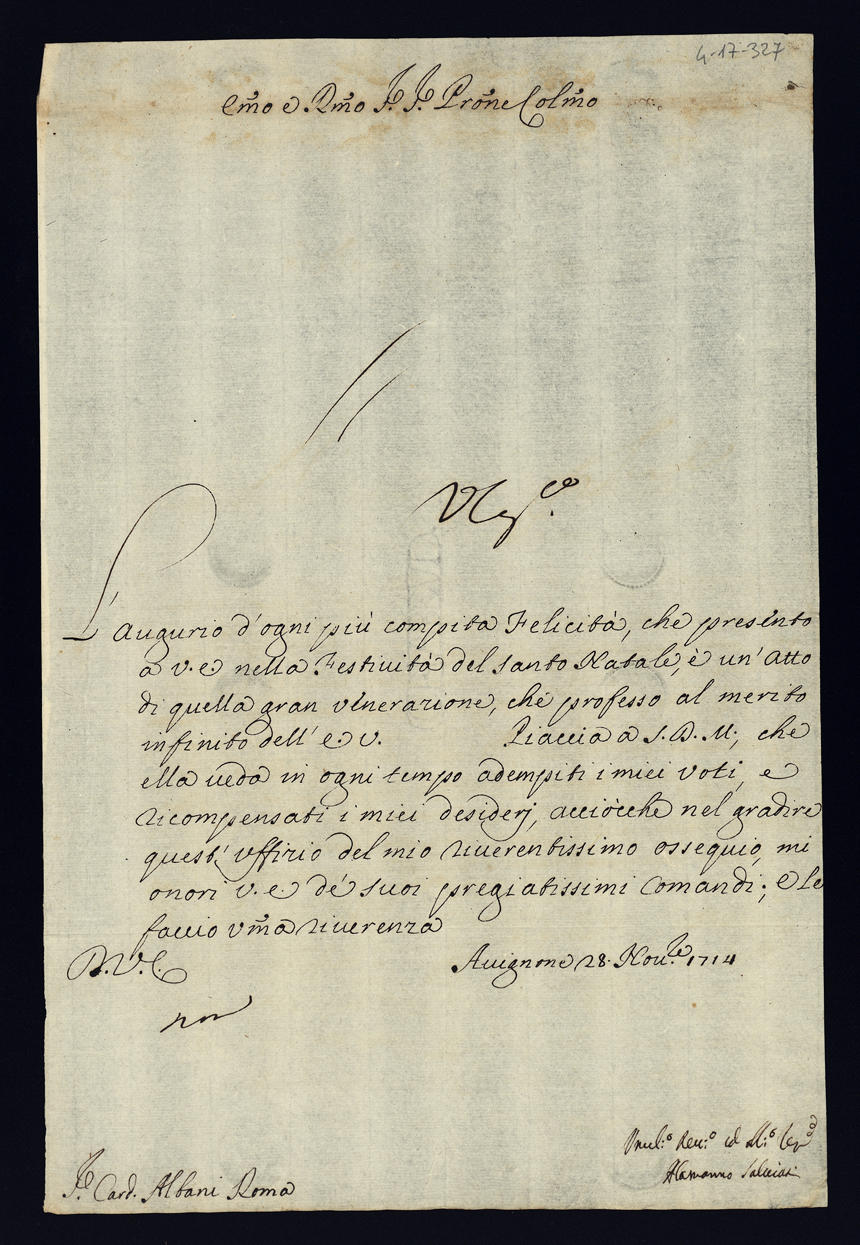 4-17-327
Emo e Rmo Sr. Sr. Prone Colmo
L'Augurio d'ogni più compita Felicità, che presento
a V.E. nella Festività del Santo Natale, è un'Atto
di quella gran venerazione, che professo al merito
infinito dell'E.V. Piaccia a S.D.M., che
ella veda in ogni tempo adempiti i miei voti, e
ricompensati i miei desiderj, acciòcche nel gradire
quest'Uffizio del mio riverentissimo ossequio, mi
onori V.E. de' suoi pregiatissimi Comandi; e le
faccio Uma riverenza
D.V.E. Avignone 28. Nov.re 1714
Sr. Card. Albani Roma
Alamanno Salviati